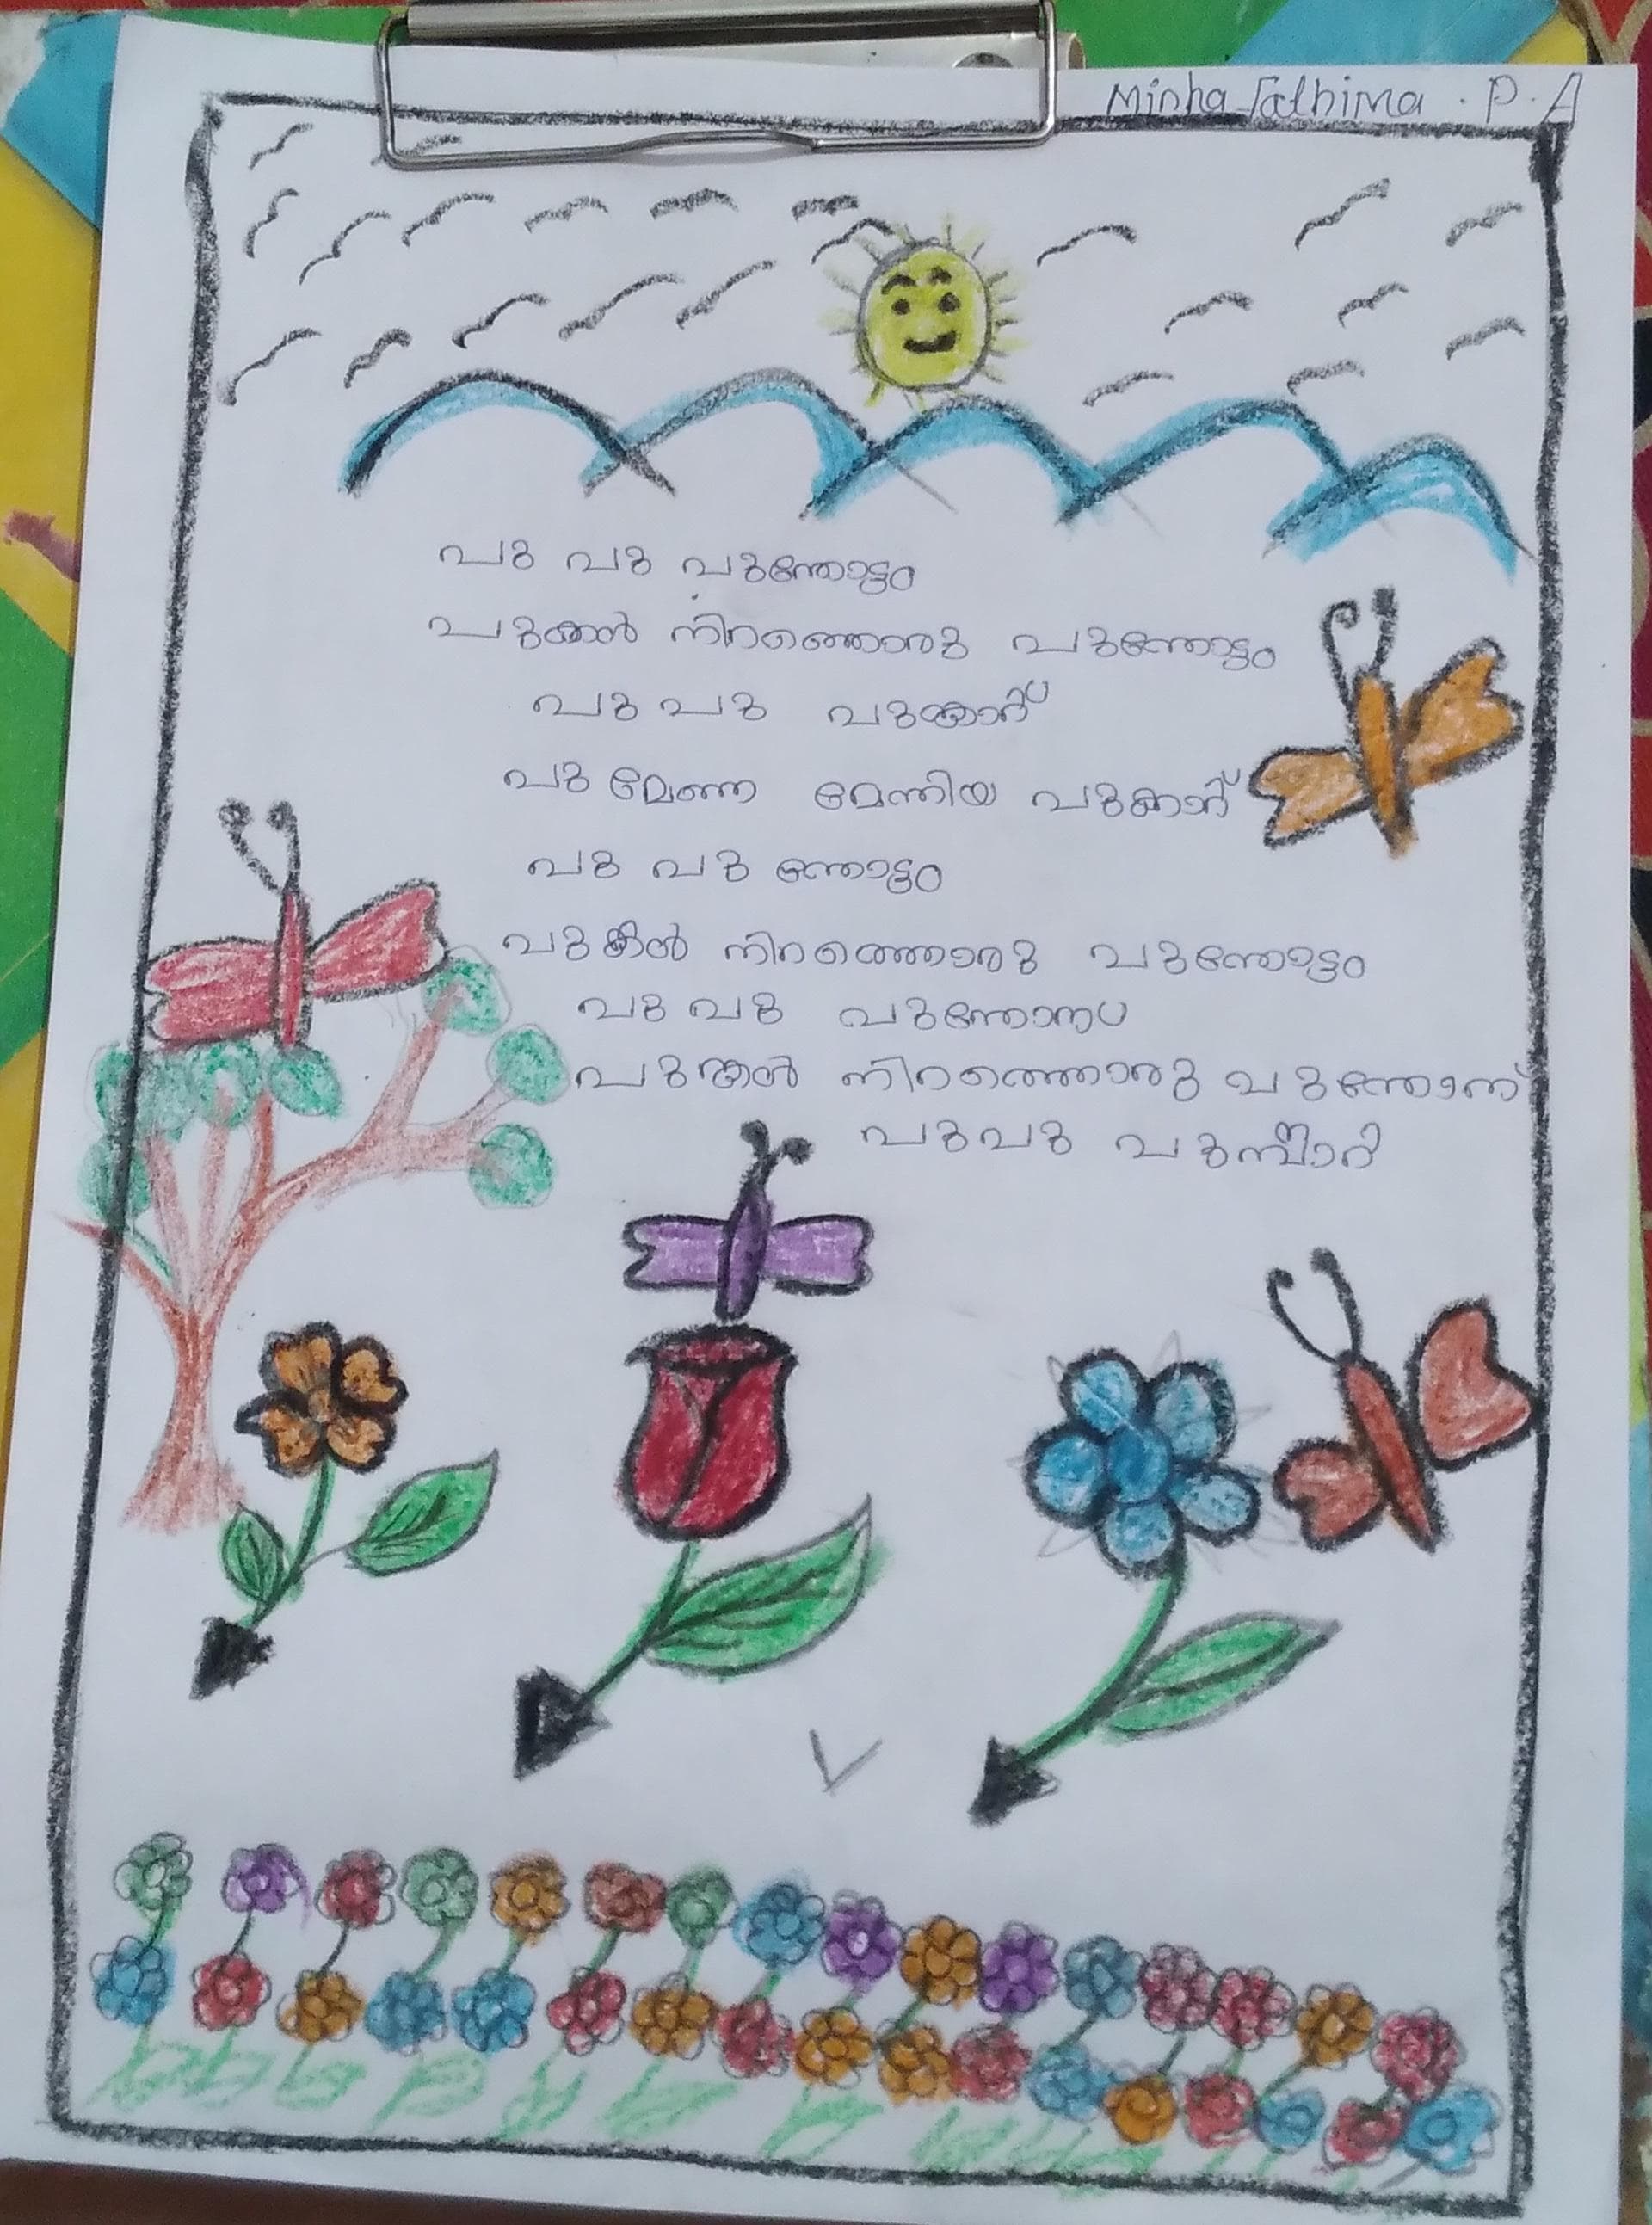 Minha Fathima . P. A
പൂ പൂ പൂന്തോട്ടം
പൂക്കൾ നിറഞ്ഞൊരു പൂന്തോട്ടം
പൂ പൂ പൂക്കാറ്
പൂ മേഞ്ഞ മേന്തിയ പൂക്കാറ്
പൂ പൂ ന്തോട്ടം
പൂക്കൾ നിറഞ്ഞൊരു പൂന്തോട്ടം
പൂ പൂ
പൂക്കൾ നിറഞ്ഞൊരു
പൂ പൂ